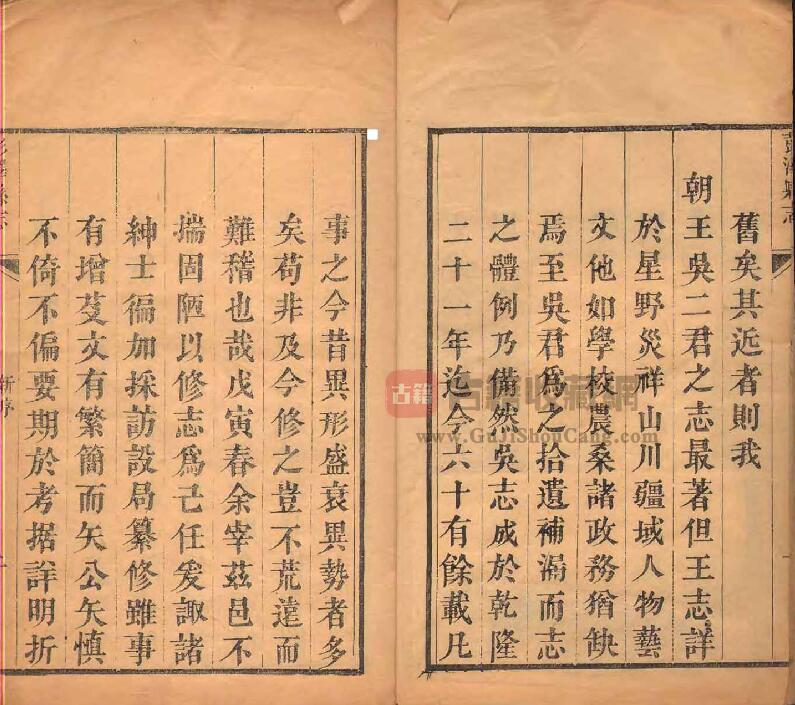 舊矣其近者則我
朝王吳二君之志最著但王志詳
於星野災祥山川疆域人物藝
文他如學校農桑諸政務猶缺
焉至吳君為之拾遺補漏而志
之體例乃備然吳志成於乾隆
二十一年迄今六十有餘載凡
事之今昔異形盛衰異勢者多
矣苟非及今修之豈不荒遠而
難稽也哉戊寅春余宰茲邑不
揣固陋以修志為己任爰諏諸
紳士徧加採訪設局纂修雖事
有增芟文有繁簡而矢公矢慎
不倚不偏要期於考据詳明折
彭澤縣志
新序
古籍
古籍收藏網
www.GuJiShouCang.com